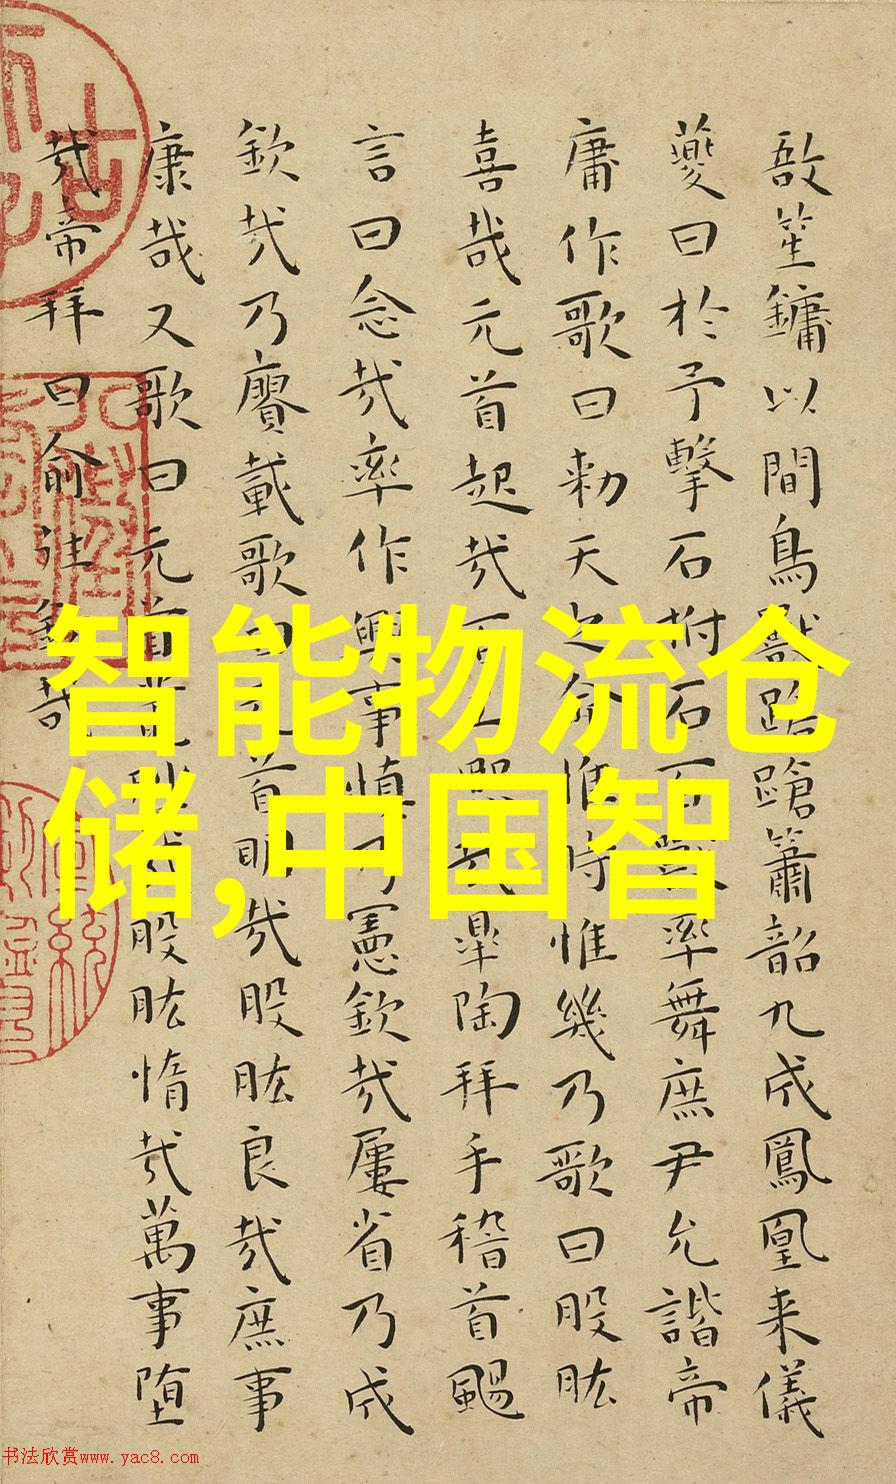 敔笙鏞以間鳥獸蹌蹌簫韶九成鳳凰来儀
夔曰於予擊石拊石百獸率舞庶尹允諧帝
庸作歌曰勑天之命惟時惟幾乃歌曰股肱
喜哉元首起哉百工熙哉皋陶拜手稽首颺
言曰念哉率作興事慎乃憲欽哉屢省乃成
欽哉乃賡載歌曰元首明哉股肱良哉庶事
康哉又歌曰元首叢脞哉股肱惰哉萬事堕
哉帝拜曰俞往欽哉
智能物流仓
储,中国智
书法欣赏www.yac8.com